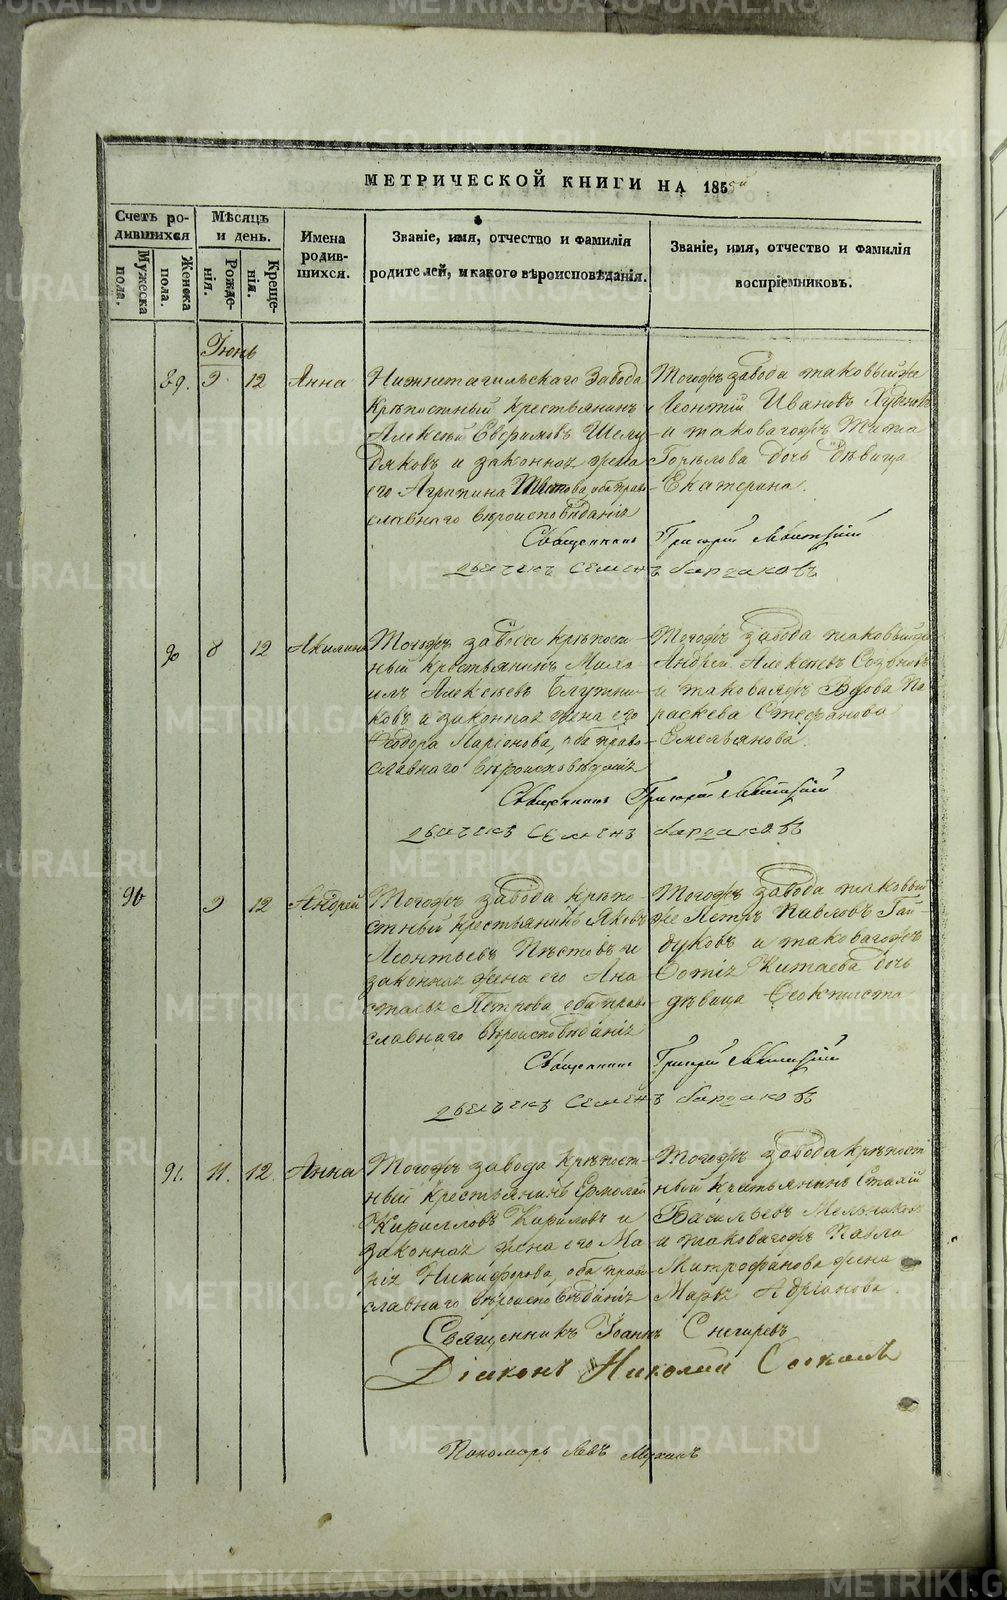 МЕТРИЧЕСКОЙ КНИГИ НА 1855й
Счетъ ро-
дившихся
Мужеска
пола.
Женска
пола.
Мѣсяцъ
и день.
Рожде-
нія.
Креще-
нія.
Имена
родив-
шихся.
Званіе, имя, отчество и фамилія
родителей, и какого вѣроисповѣданія.
Званіе, имя, отчество и фамилія
воспріемниковъ.
Іюнь
89. 9. 12 Анна
Нижнетагильскаго Завода
крѣпостный крестьянинъ
Алексѣй Евфимовъ Шелу
дяковъ и законная жена
его Агрипина Титова, оба право
славнаго вѣроисповѣданія
Тогожъ завода таковыйже
Леонтій Ивановъ
и таковагожъ Тита
Горѣлова дочь дѣвица
Екатерина.
Священникъ Григорій
дьячекъ Семенъ Бардаковъ
90 8 12 Акилина
Тогожъ завода крѣпост
ный крестьянинъ Миха
илъ Алексѣевъ Блудни
ковъ и законная жена его
Ѳеодора Ларіонова, оба право
славнаго вѣроисповѣданія
Тогожъ завода таковыйже
Андрей Алексѣевъ Созоновъ
и таковаяжъ Вдова Па
раскева Стефанова
Емельянова.
Священникъ Григорій
дьячекъ Семенъ Бардаковъ
96 9 12 Андрей
Тогожъ завода крѣпо
стный крестьянинъ Яковъ
Леонтьевъ Пѣстовъ и
законная жена его Ана
стасья Петрова, оба право
славнаго вѣроисповѣданія
Тогожъ завода таковый
же Петръ Павловъ Гай
дуковъ и таковагожъ
Фотія Китаева дочь
дѣвица Ѳеоктиста
Священникъ Григорій
дьячекъ Семенъ Бардаковъ
91. 11. 12. Анна
Тогожъ завода крѣпост
ный крестьянинъ Ермолай
Кирилловъ Кириловъ и
законная жена его Ма
рія Никифорова, оба право
славнаго вѣроисповѣданія
Тогожъ завода крѣпост
ный крестьянинъ Стахій
Васильевъ Мельниковъ
и таковагожъ Павла
Митрофанова жена
Марья Адріанова.
Священникъ Іоаннъ Снегиревъ
Діаконъ Николай
Пономарь Левъ Мухинъ
METRIKI.GASO-URAL.RU